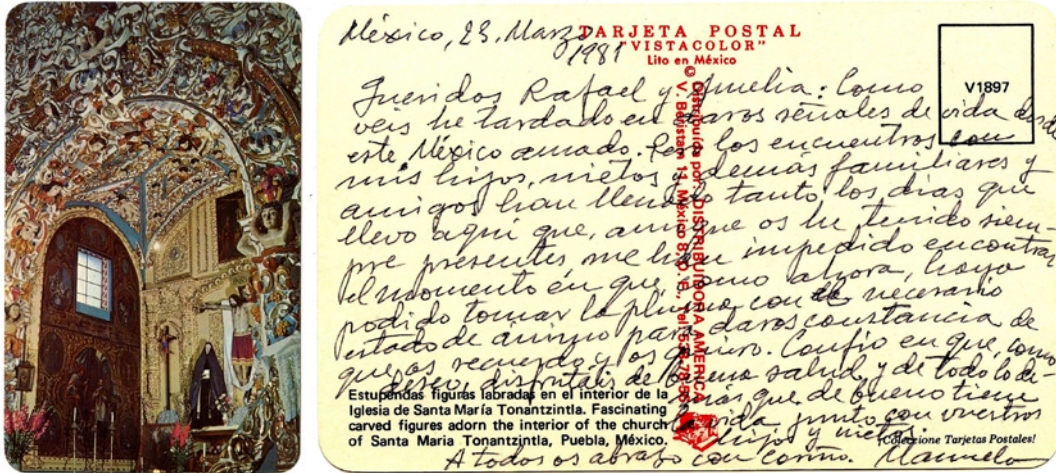 México, 23, Marzo
1981
TARJETA POSTAL
"VISTACOLOR"
Lito en México
V1897
Queridos Rafael y Amelia: Como
veis he tardado en daros señales de vida desde
este México amado. Pero los encuentros con
mis hijos, nietos y demás familiares y
amigos han llenado tanto los días que
llevo aquí que, aunque os he tenido siem-
pre presentes me han impedido encontrar
el momento en que, como ahora, haya
podido tomar la pluma con el necesario
estado de ánimo para daros constancia de
que os recuerdo y os quiero. Confío en que, como
deseo, disfrutáis de buena salud y de todo lo de-
más que de bueno tiene
la vida junto con vuestros
hijos y nietos.
A todos os abrazo con cariño. Manuela
© Distribuida por: DISTRIBUIDORA AMERICA
V. Beristain 11, México 8, D. F., Tel.
Estupendas figuras labradas en el interior de la
Iglesia de Santa María Tonantzintla. Fascinating
carved figures adorn the interior of the church
of Santa Maria Tonantzintla, Puebla, México.
¡Coleccione Tarjetas Postales!